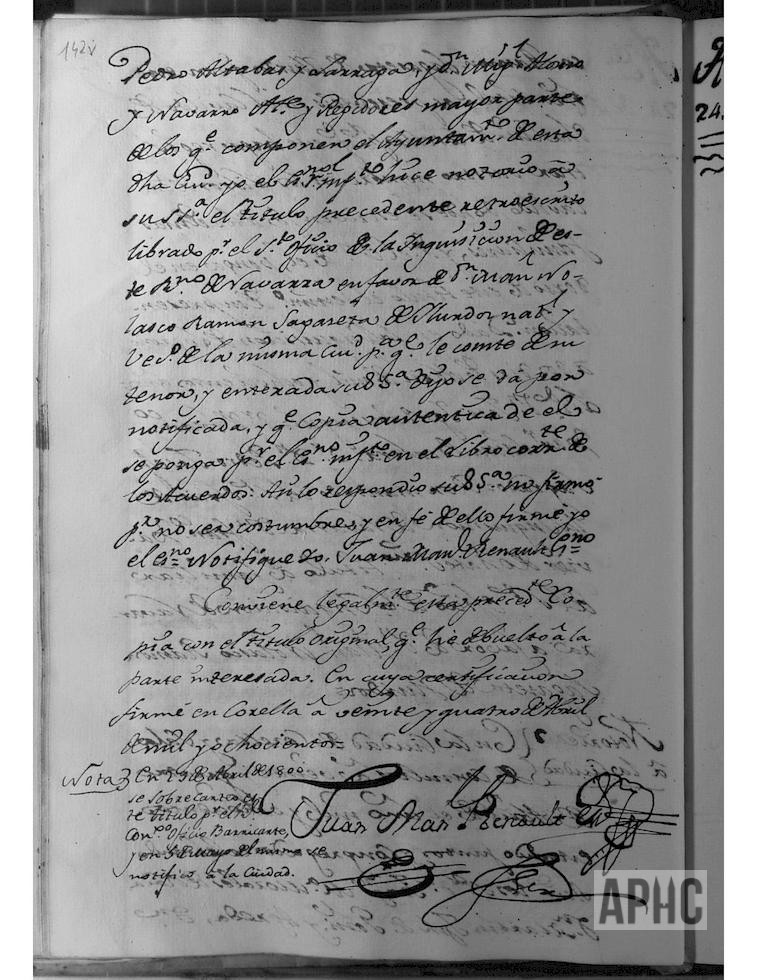 142v
Pedro Altabas y Larraga, y dn. Migl. Alonso
y Navarro Alte. y Regidores mayor parte
de los qe. componen el Ayuntamto. de esta
dha Ciud. yo el Esno. Rl. infto. hice notorio â
su Sa. el titulo precedente retroescrito
librado pr. el Sto. Oficio de la Inquisicion de es-
te Rno. de Navarra en favor de dn. Manl. No-
lasco Ramon Sagaseta de Ylurdoz natl. y
Veso. de la misma Ciud. pa. qe. le conste de su
tenor, y enterada su Sa. dijo se dá por
notificada, y qe. Copia autentica de el
se ponga pr. el Esno. infto. en el Libro corrte. de
los Acuerdos: Asi lo respondio su Sa. no firmó
pr. no ser costumbre, y en fé de ello firmé yo
el esno.= Notifiquedo. Juan Manl. Renault Esno=
Conviene legalmte. esta precedte. Co-
pia con el titulo original, qe. he debuelto â la
parte interesada. En cuya certificacion
firmé en Corella â veinte y quatro de Abril
de mil y ochocientos=
Nota En 29 de Abril de 1800
se sobrecarteo es-
te titulo pr. el
Conso. Oficio Barricarte,
y en de Mayo del mismo se
notifico â la Ciudad.
Juan Man Renault Esno
APHC
24.